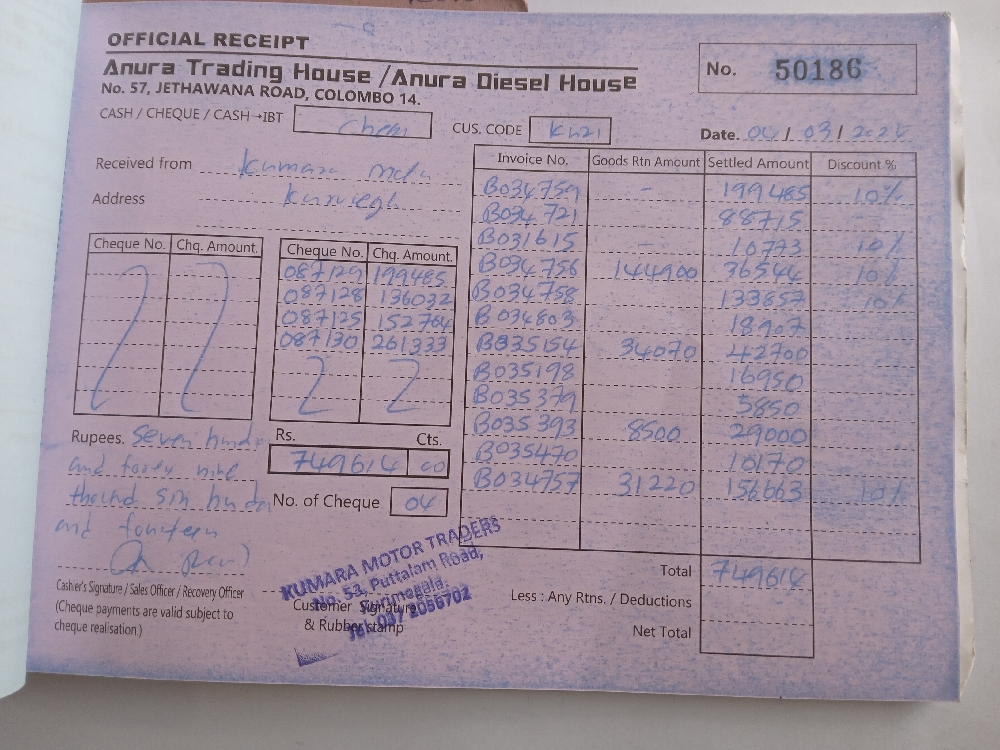 OFFICIAL RECEIPT
Anura Trading House / Anura Diesel House
No. 57, JETHAWANA ROAD, COLOMBO 14.
No. 50186
CASH / CHEQUE / CASH→IBT
CUS. CODE
Date. 04 / 03 /
Received from Kumara
Address
Invoice No. Goods Rtn Amount Settled Amount Discount %
B034759 - 199485 10%
B034721 88715
B031615 - 10773 10%
B034756 144900 36544 10%
B034758 133857 10%
B034803 18907
B035154 34070 42700
B035198 16950
B035379 5850
B035393 8500 29000
B035470 10170
B034757 31220 156663 10%
Cheque No. Chq. Amount.
Cheque No. Chq. Amount.
087129 199485
087128 136032
087125 152764
087130 261333
Rupees. Seven
and forty nine
and fourteen
Rs. Cts.
749614 00
No. of Cheque 04
Total 749614
Less : Any Rtns. / Deductions
Net Total
Cashier's Signature / Sales Officer / Recovery Officer
(Cheque payments are valid subject to
cheque realisation.)
Customer Signature
& Rubber stamp
KUMARA MOTOR TRADERS
No. 53, Puttalam Road,
Kurunegala.
Tel: 037 2056702